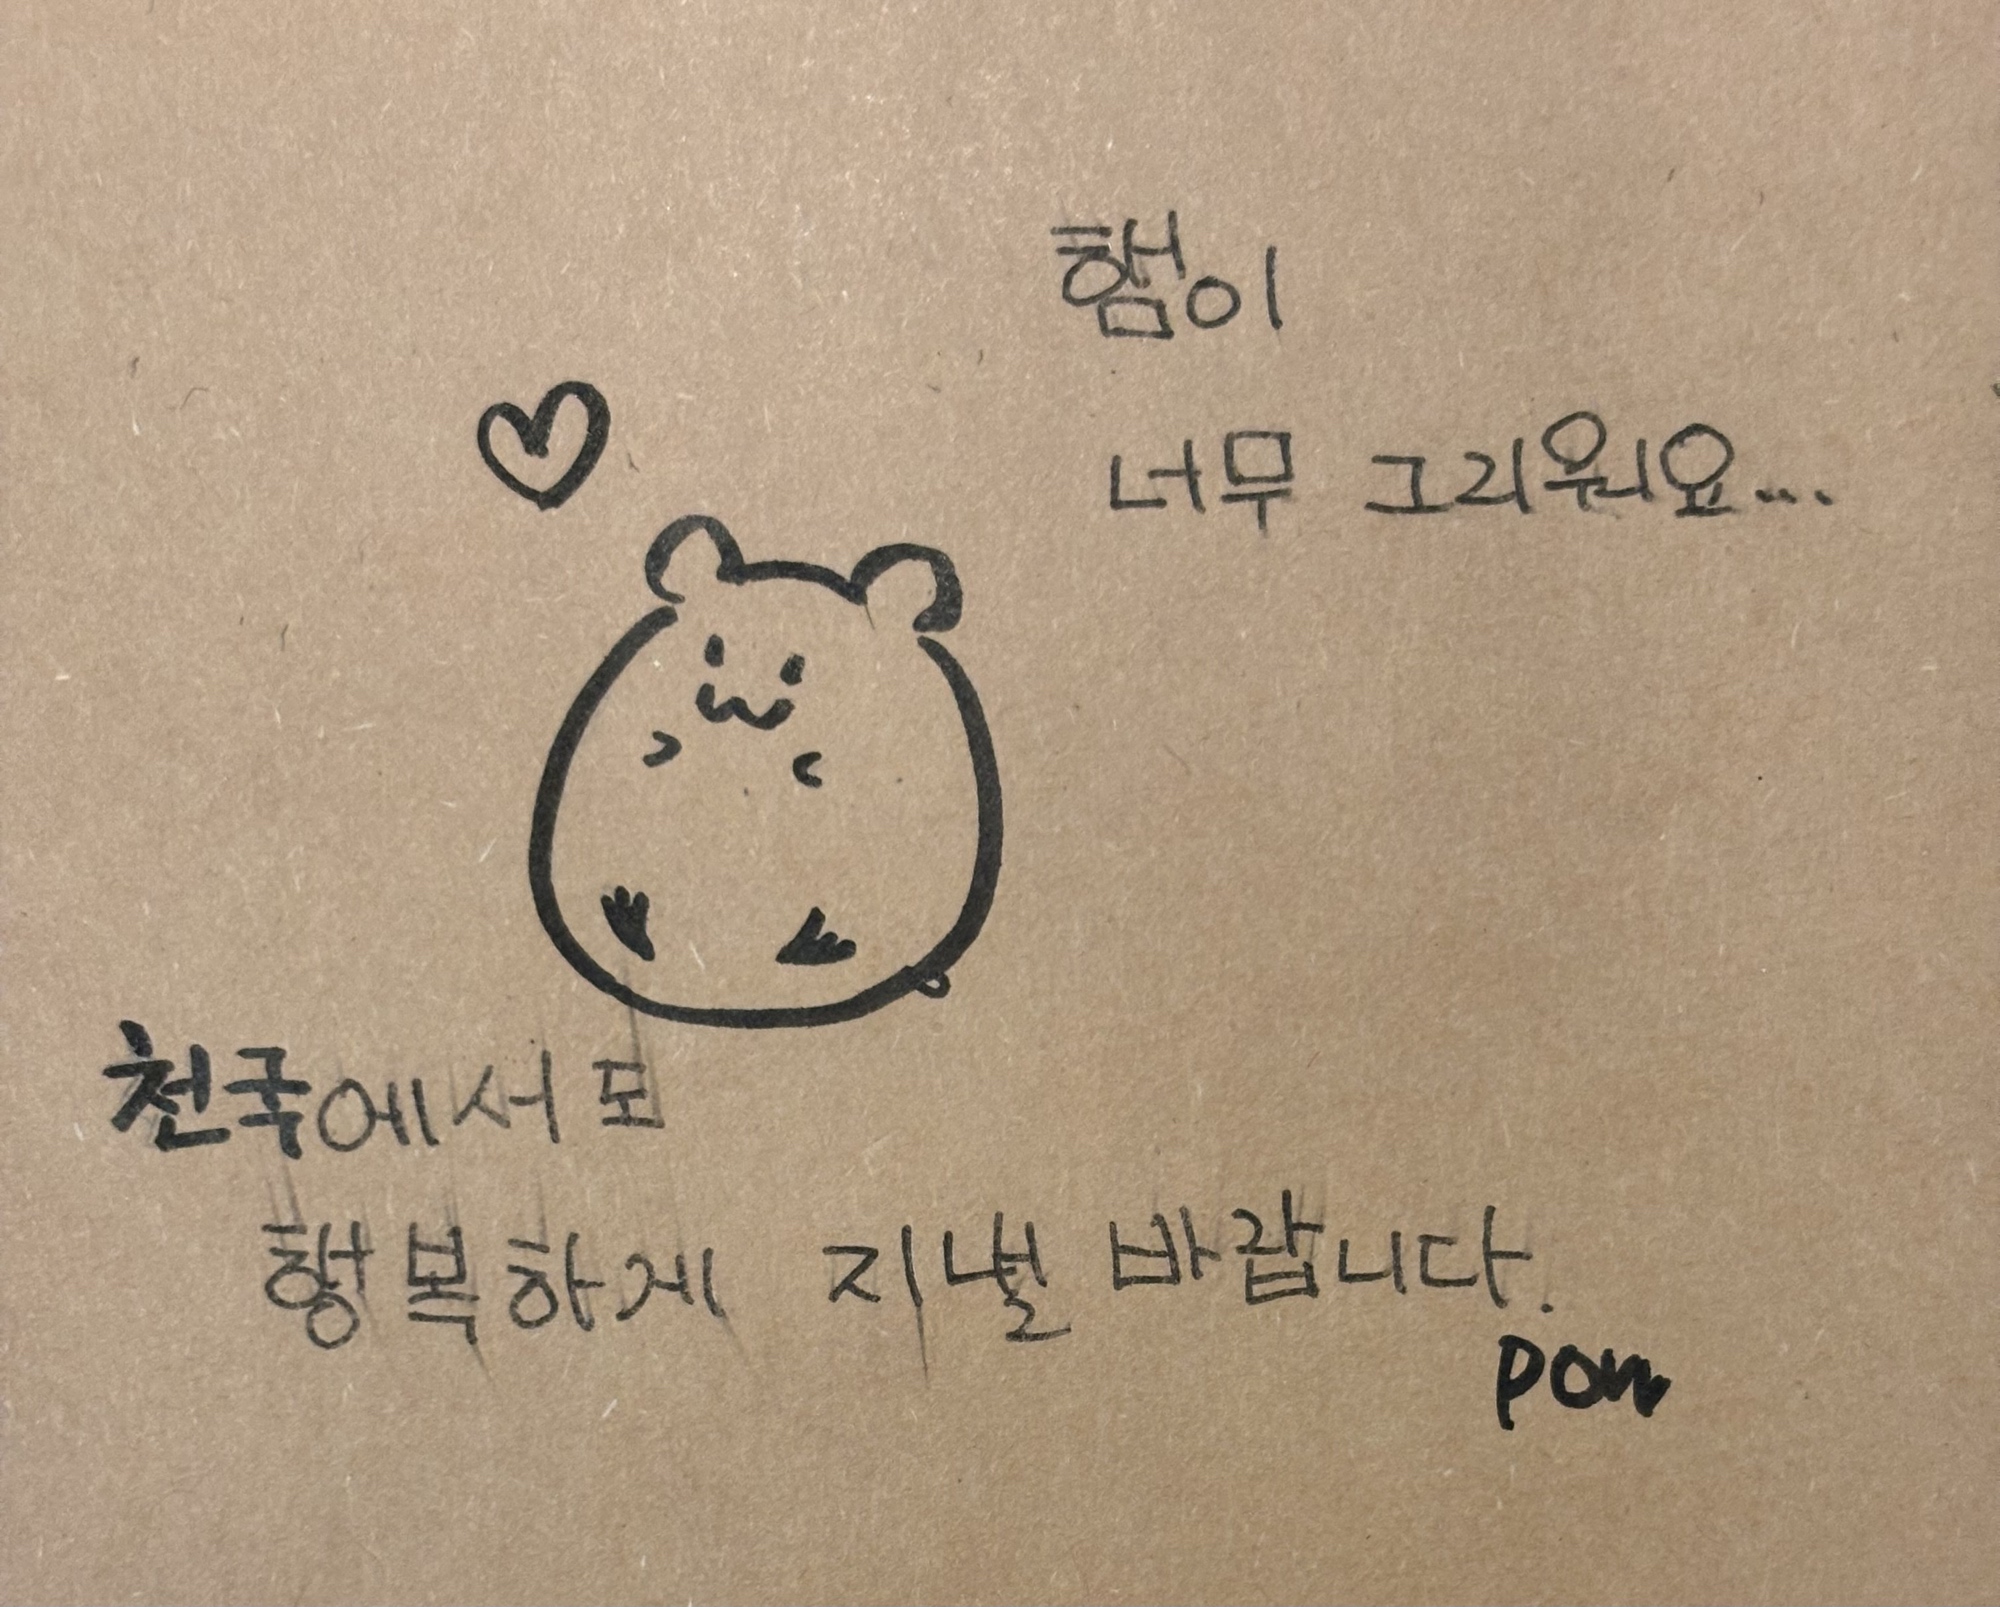 햄이
너무 그리워요...
천국에서도
행복하게 지낼 바랍니다.
pon